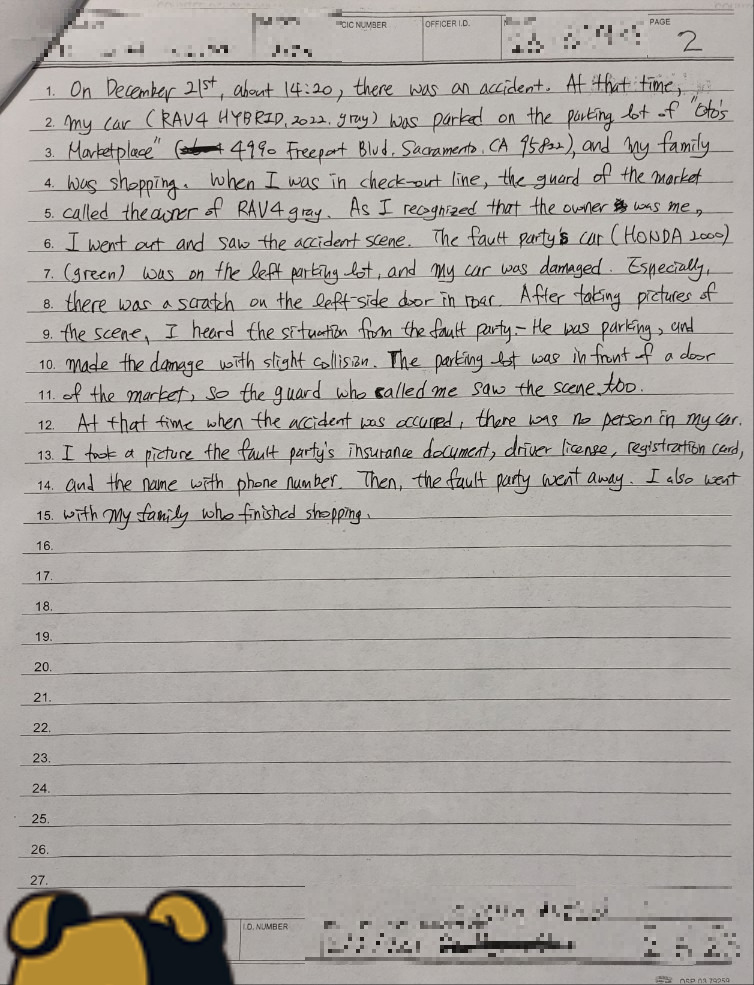 NCIC NUMBER OFFICER I.D. PAGE
2
1. On December 21st, about 14:20, there was an accident. At that time,
2. my car (RAV4 HYBRID, 2022, gray) was parked on the parking lot of "Oto's
3. Marketplace" ( 4990 Freeport Blvd. Sacramento. CA 95822), and my family
4. was shopping. When I was in check-out line, the guard of the market
5. called the owner of RAV4 gray. As I recognized that the owner was me,
6. I went out and saw the accident scene. The fault party's car (HONDA 2000)
7. (green) was on the left parking lot, and my car was damaged. Especially,
8. there was a scratch on the left-side door in roar. After taking pictures of
9. the scene, I heard the situation from the fault party.- He was parking, and
10. made the damage with slight collision. The parking lot was in front of a door
11. of the market, so the guard who called me saw the scene too.
12. At that time when the accident was occured, there was no person in my car.
13. I took a picture the fault party's insurance document, driver license, registration card,
14. and the name with phone number. Then, the fault party went away. I also went
15. with my family who finished shopping.
16.
17.
18.
19.
20.
21.
22.
23.
24.
25.
26.
27.
I.D. NUMBER
OSP 03 79259